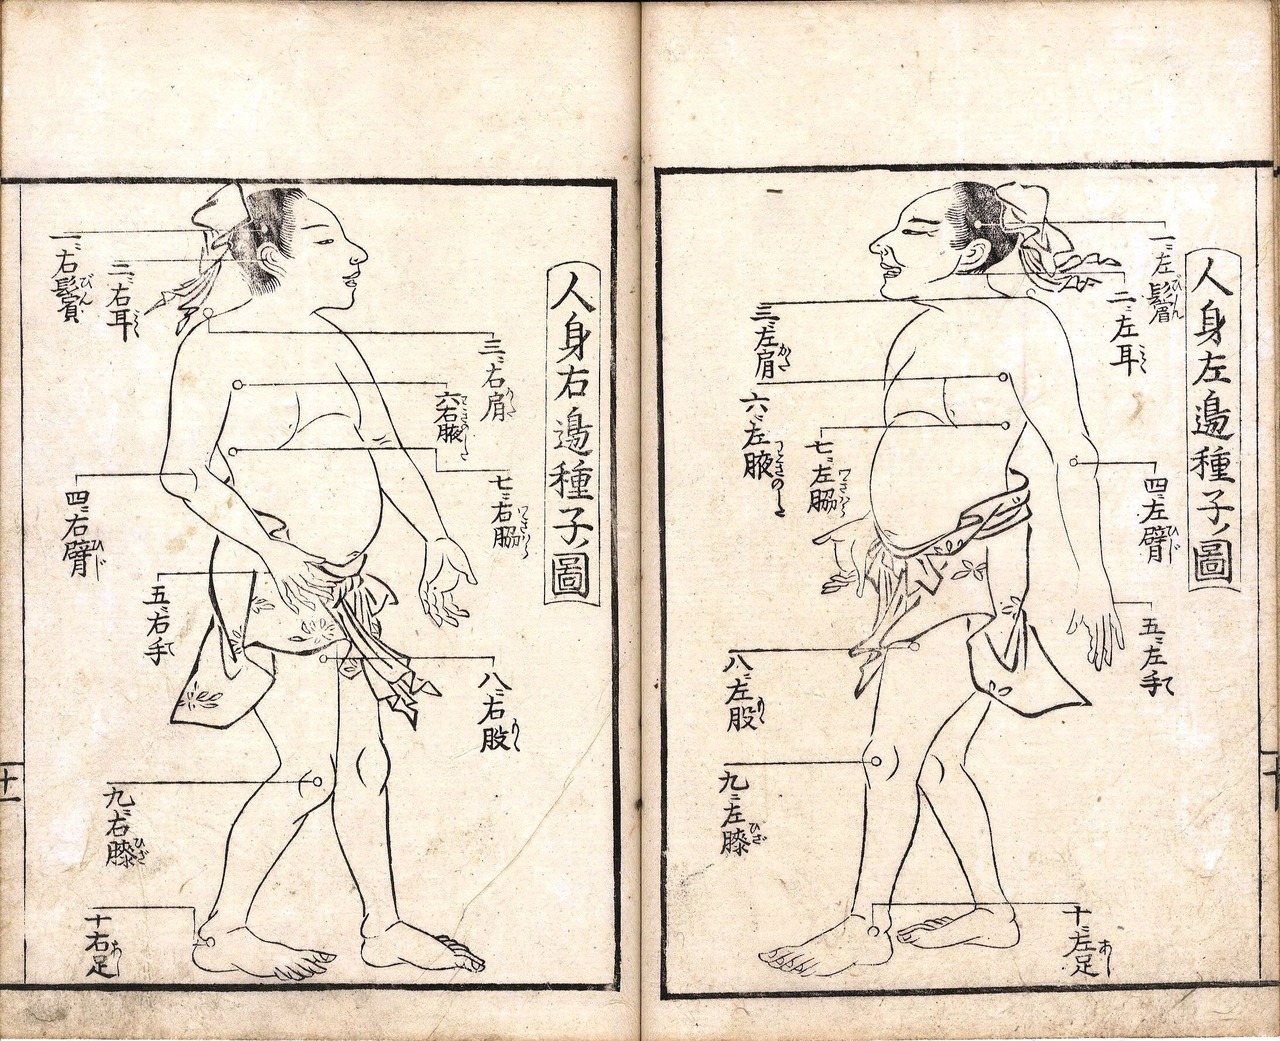 人身左邉種子ノ圖
一ニ左鬢びん
二ニ左耳みゝ
三ニ左肩かた
四ニ左臂ひじ
五ニ左手て
六ニ左腋わきのした
七ニ左脇ワきはら
八ニ左股もゝ
九ニ左膝ひざ
十ニ左足あし
人身右邉種子ノ圖
一ニ右鬢びん
二ニ右耳みゝ
三ニ右肩かた
四ニ右臂ひじ
五ニ右手て
六右腋わきのした
七ニ右脇わきはら
八ニ右股もゝ
九ニ右膝ひざ
十右足あし
十一